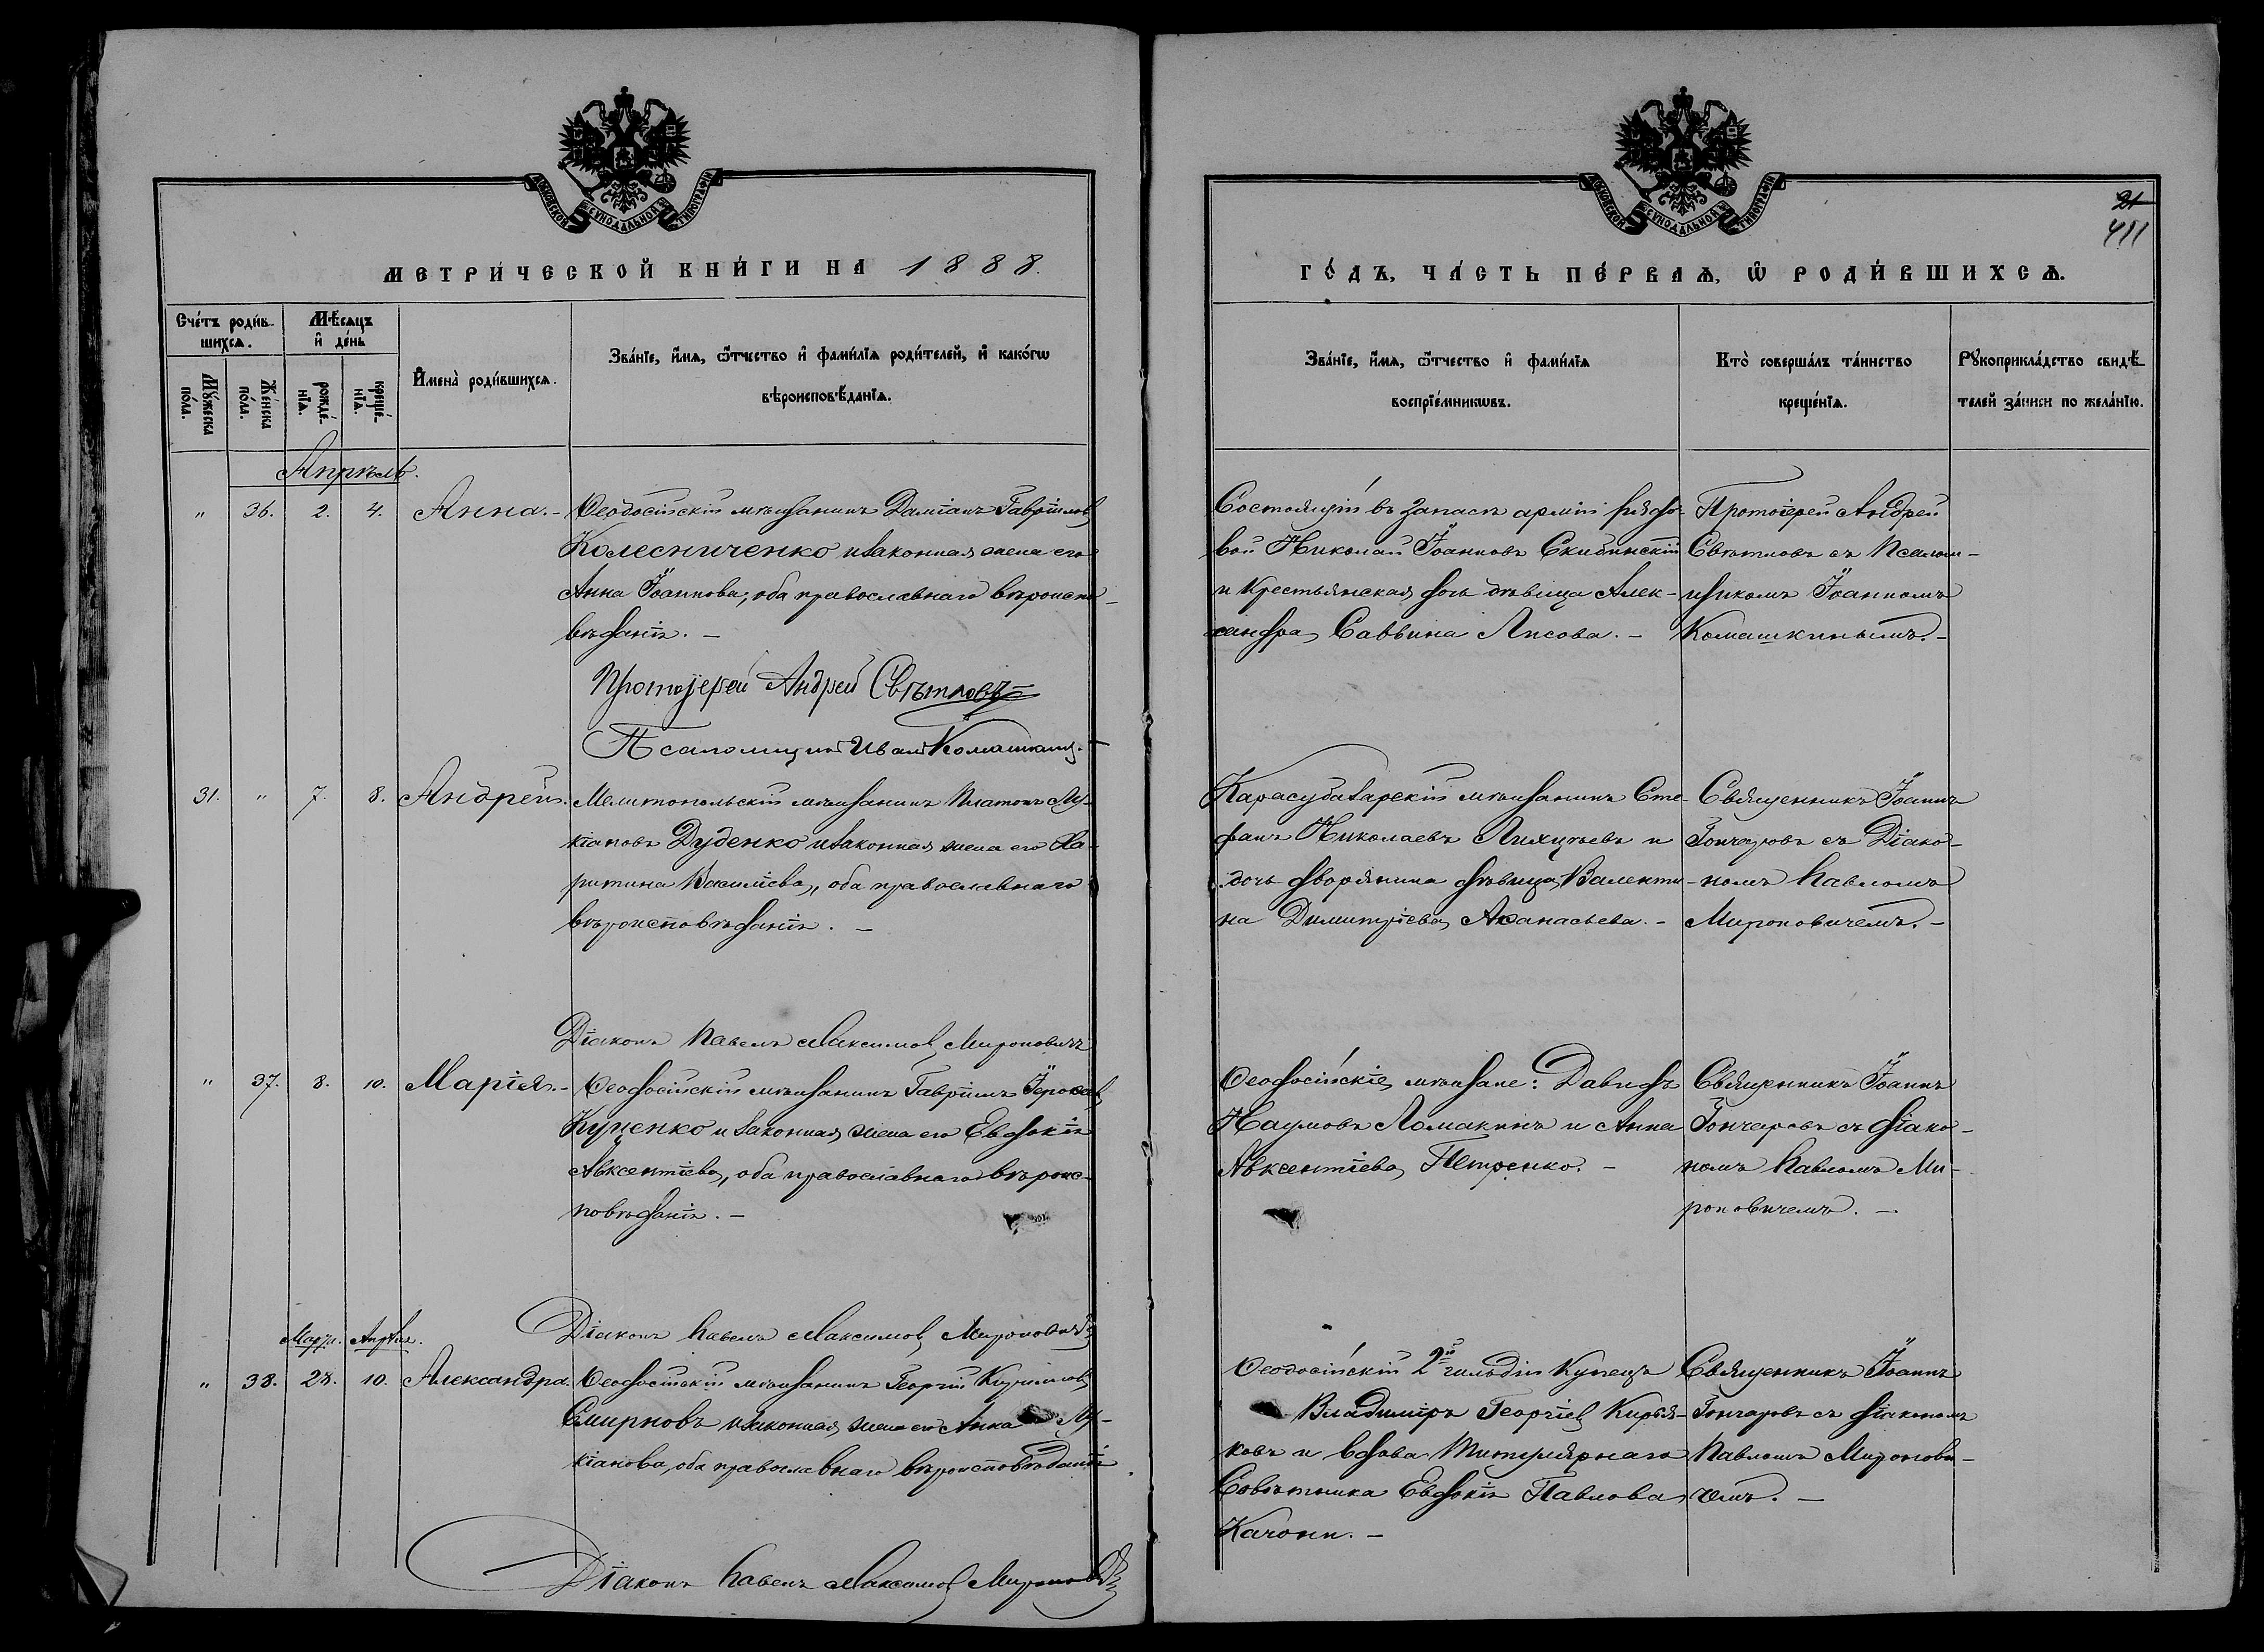 МОСКОВСКОЙ СѴНОДАЛЬНОЙ ТИПОГРАФІИ
МЕТРИ́ЧЕСКОЙ КНИ́ГИ НА 1888.
Сче́тъ роди́в-
шихсѧ.
Мѣ́сѧцъ
и҆ де́нь
Мꙋ́жеска
по́ла.
Же́нска
по́ла.
рожде́-
нїѧ.
креще́-
нїѧ.
И҆мена̀ роди́вшихсѧ.
Зва́нїе, и҆́мѧ, ѻ҆́тчество и҆ фами́лїѧ роди́телей, и҆ како́гѡ
вѣроисповѣ́данїѧ.
Апрѣль.
" 36. 2. 4. Анна. - Ѳеодосійскій мѣщанинъ Даміанъ Гавріиловъ
Колесниченко и законная жена его
Анна Іоаннова, оба православнаго вѣроиспо-
вѣданія. -
Протоіерей Андрей Свѣтловъ
Псаломщикъ Иванъ Комашкинъ. -
31. " 7. 8. Андрей. Мелитопольскій мѣщанинъ Платонъ Лу-
кіановъ Дуденко и законная жена его Ха-
ритина Василіева, оба православнаго
вѣроисповѣданія. -
Діаконъ Павелъ Максимовъ Мироновичъ
" 37. 8. 10. Марія. - Ѳеодосійскій мѣщанинъ Гавріилъ
Куценко и законная жена его Евдокія
Авксентіева, оба православнаго вѣроис-
повѣданія. -
Діаконъ Павелъ Максимовъ Мироновичъ
Марта. Апрѣля.
" 38. 28. 10. Александра. Ѳеодосійскій мѣщанинъ Георгій Кирилловъ
Смирновъ и законная жена его Анна Лу-
кіанова, оба православнаго вѣроисповѣданія
Діаконъ Павелъ Максимовъ Мироновичъ
МОСКОВСКОЙ СѴНОДАЛЬНОЙ ТИПОГРАФІИ
21
411
ГО́ДЪ, ЧА́СТЬ ПЕ́РВАѦ, Ѡ҆ РОДИ́ВШИХСѦ.
Зва́нїе, и҆́мѧ, ѻ҆́тчество и҆ фами́лїѧ
воспрїе́мникѡвъ.
Кто̀ соверша́лъ та́инство
креще́нїѧ.
Рꙋкоприкла́дство свидѣ́-
телей за́писи по жела́нїю.
Состоящій въ запасѣ арміи рядо-
вой Николай Іоанновъ Скибинскій
и крестьянская дочь дѣвица Алек-
сандра Саввина Лисова. -
Протоіерей Андрей
Свѣтловъ съ Псалом-
щикомъ Іоанномъ
Комашкинымъ. -
Карасубазарскій мѣщанинъ Сте-
фанъ Николаевъ Лихцѣевъ и
дочь дворянина дѣвица Валенти-
на Димитріева Аѳанасьева. -
Священникъ Іоаннъ
Гончаровъ съ Діако-
номъ Павломъ
Мироновичемъ. -
Ѳеодосійскіе мѣщане: Давидъ
Наумовъ Ломакинъ и Анна
Авксентіева Петренко. -
Священникъ Іоаннъ
Гончаровъ съ діако-
номъ Павломъ Ми-
роновичемъ. -
Ѳеодосійскій 2й гильдіи Купецъ
Владиміръ Георгіевъ Кирья-
ковъ и вдова Титулярнаго
Совѣтника Евдокія Павлова
Качони. -
Священникъ Іоаннъ
Гончаровъ съ діакономъ
Павломъ Миронови-
чемъ. -